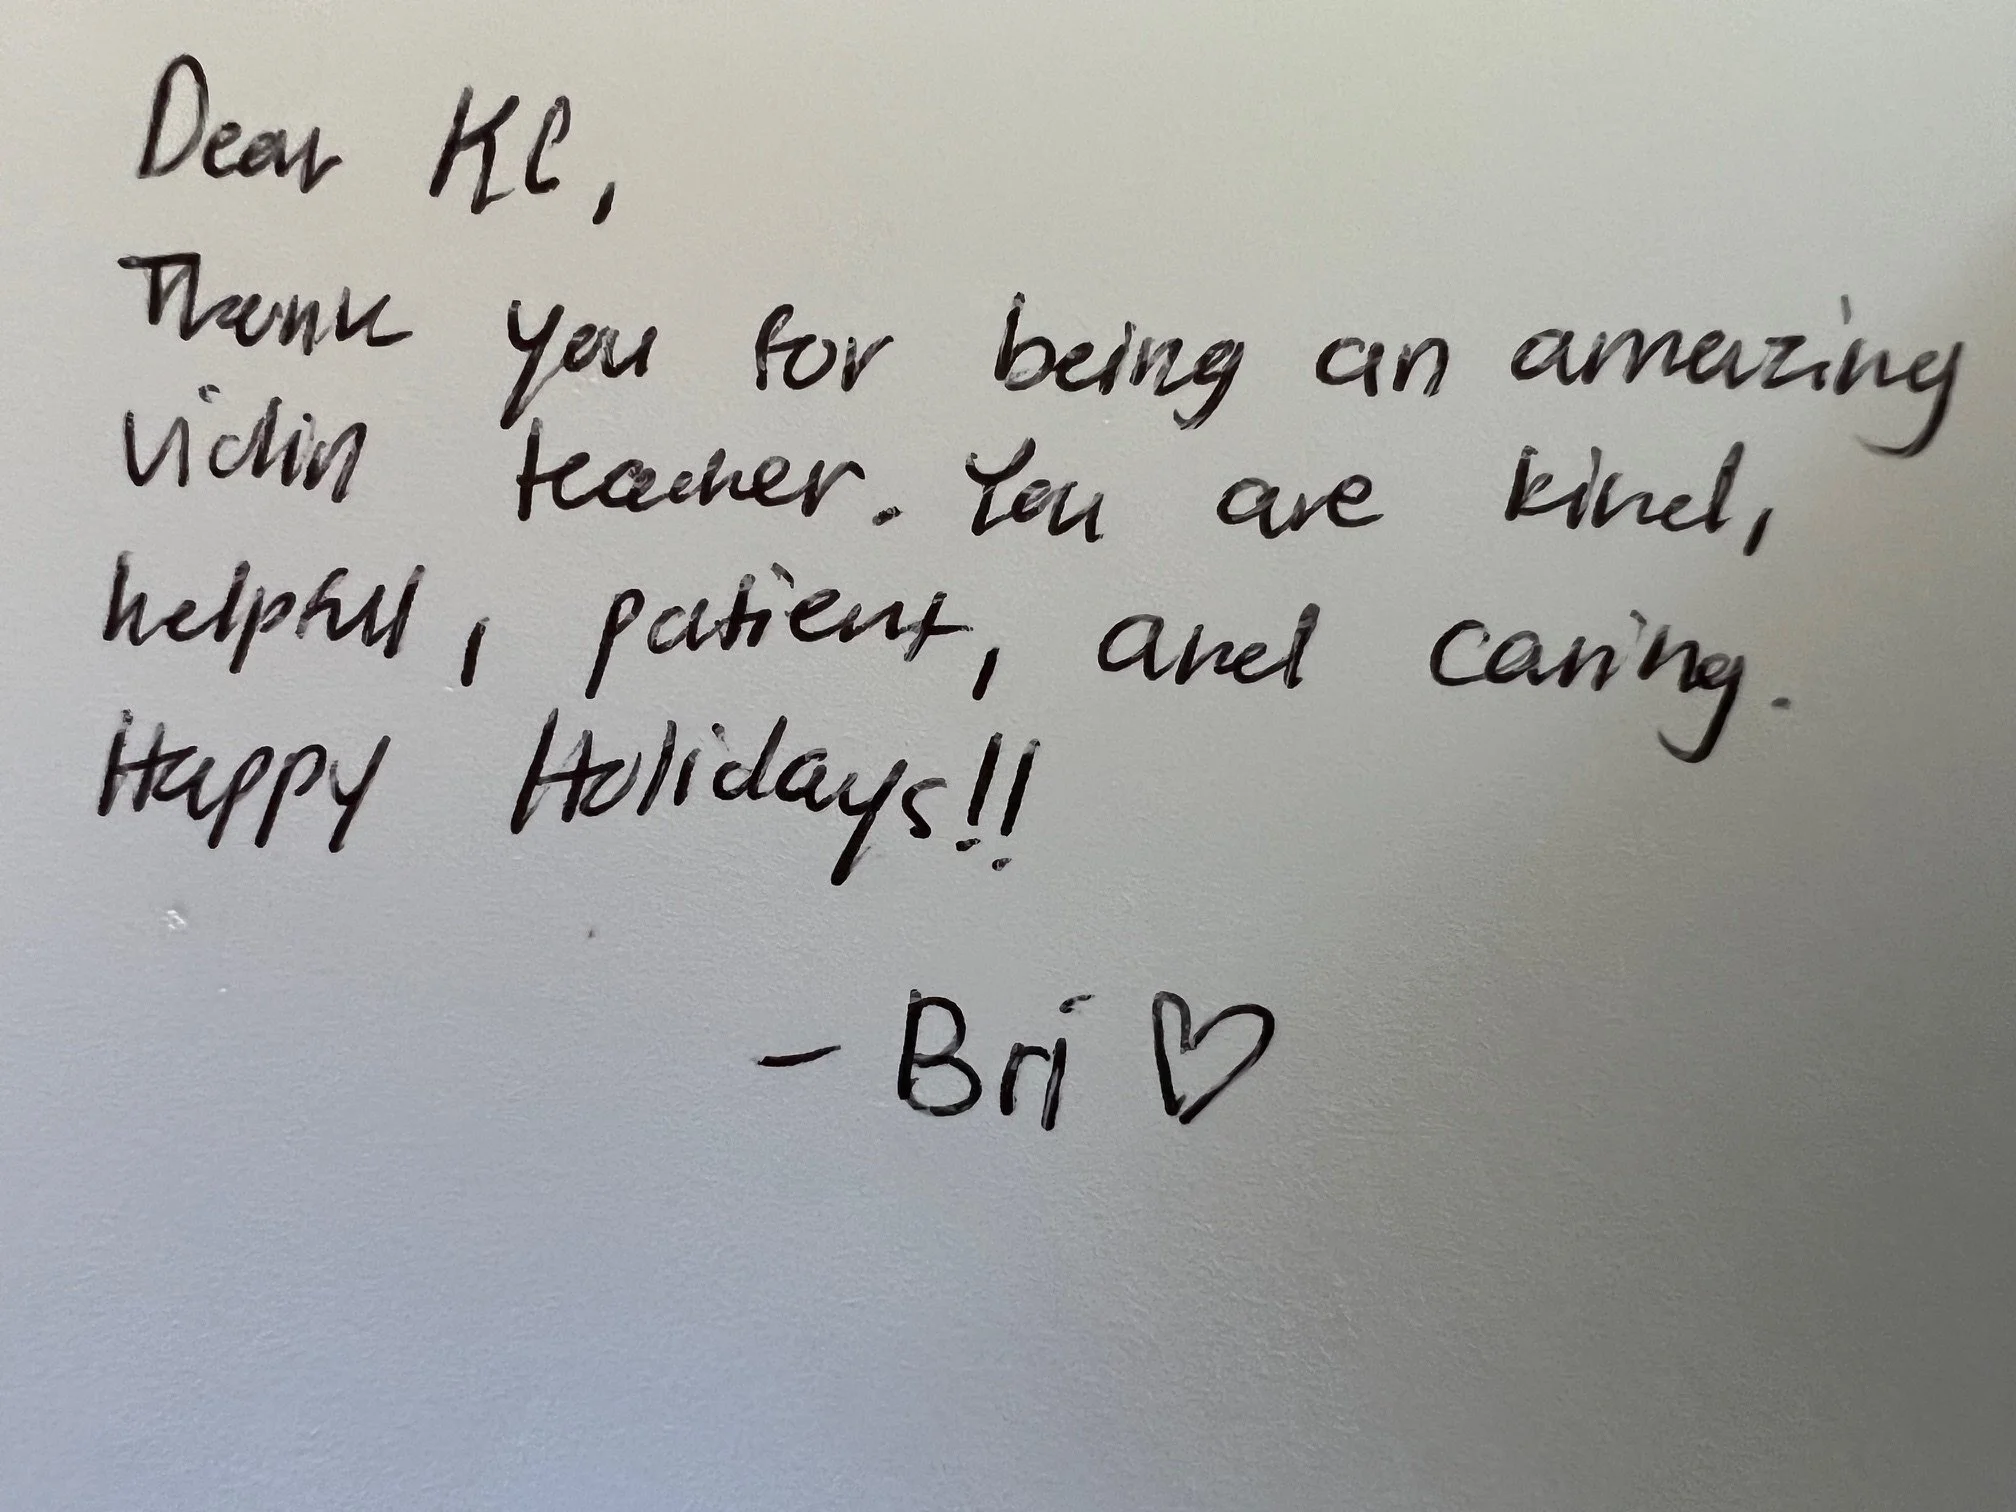 Dear KC,
Thank you for being an amazing
violin teacher. You are kind,
helpful, patient, and caring.
Happy Holidays!!
- Bri ♡